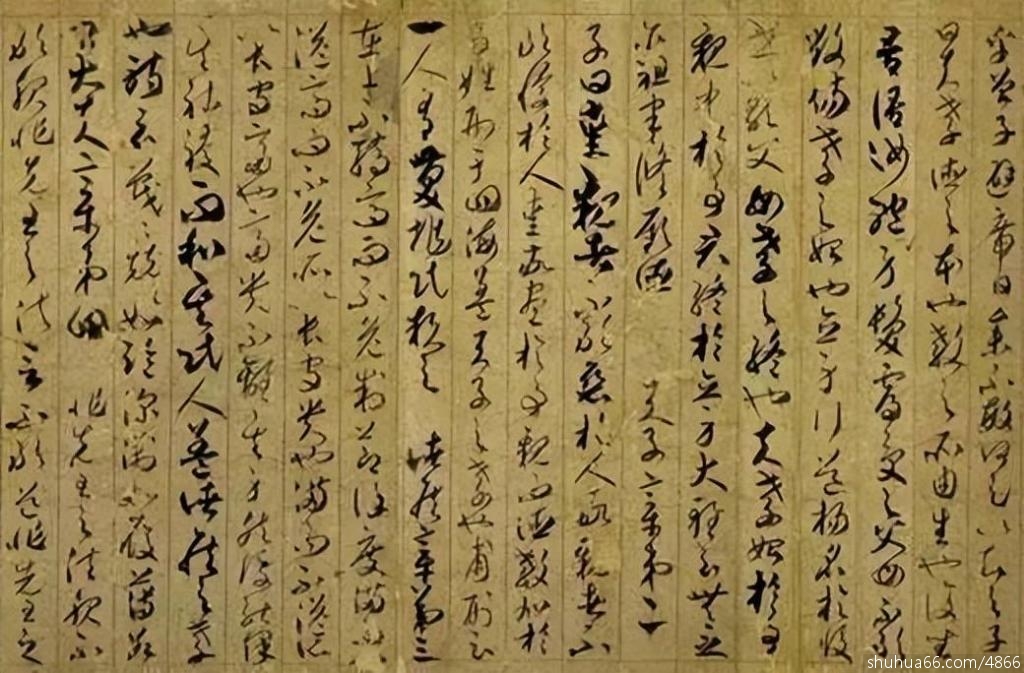 乎曾子避席曰參不敏何足以知之子
曰夫孝德之本也教之所由生也復坐
吾語汝體身髮膚受之父母不敢
毀傷孝之始也立身行道揚名於後
世以顯父母孝之終也夫孝始於事
親中於事君終於立身大雅云無念
尔祖聿脩厥德 天子章第二
子曰愛親者不敢惡於人敬親者不
敢慢於人愛敬盡於事親而德教加於
百姓刑于四海蓋天子之孝也甫刑云
一人有慶兆民賴之 諸侯章第三
在上不驕高而不危制節謹度滿而不
溢高而不危所以長守貴也滿而不溢所
以長守富也富貴不離其身然後能保
其社稷而和其民人蓋諸侯之孝
也詩云戰戰兢兢如臨深淵如履薄冰
卿大夫章第四 非先王之法服不
敢服非先王之法言不敢道非先王之
shuhua66.com/4866